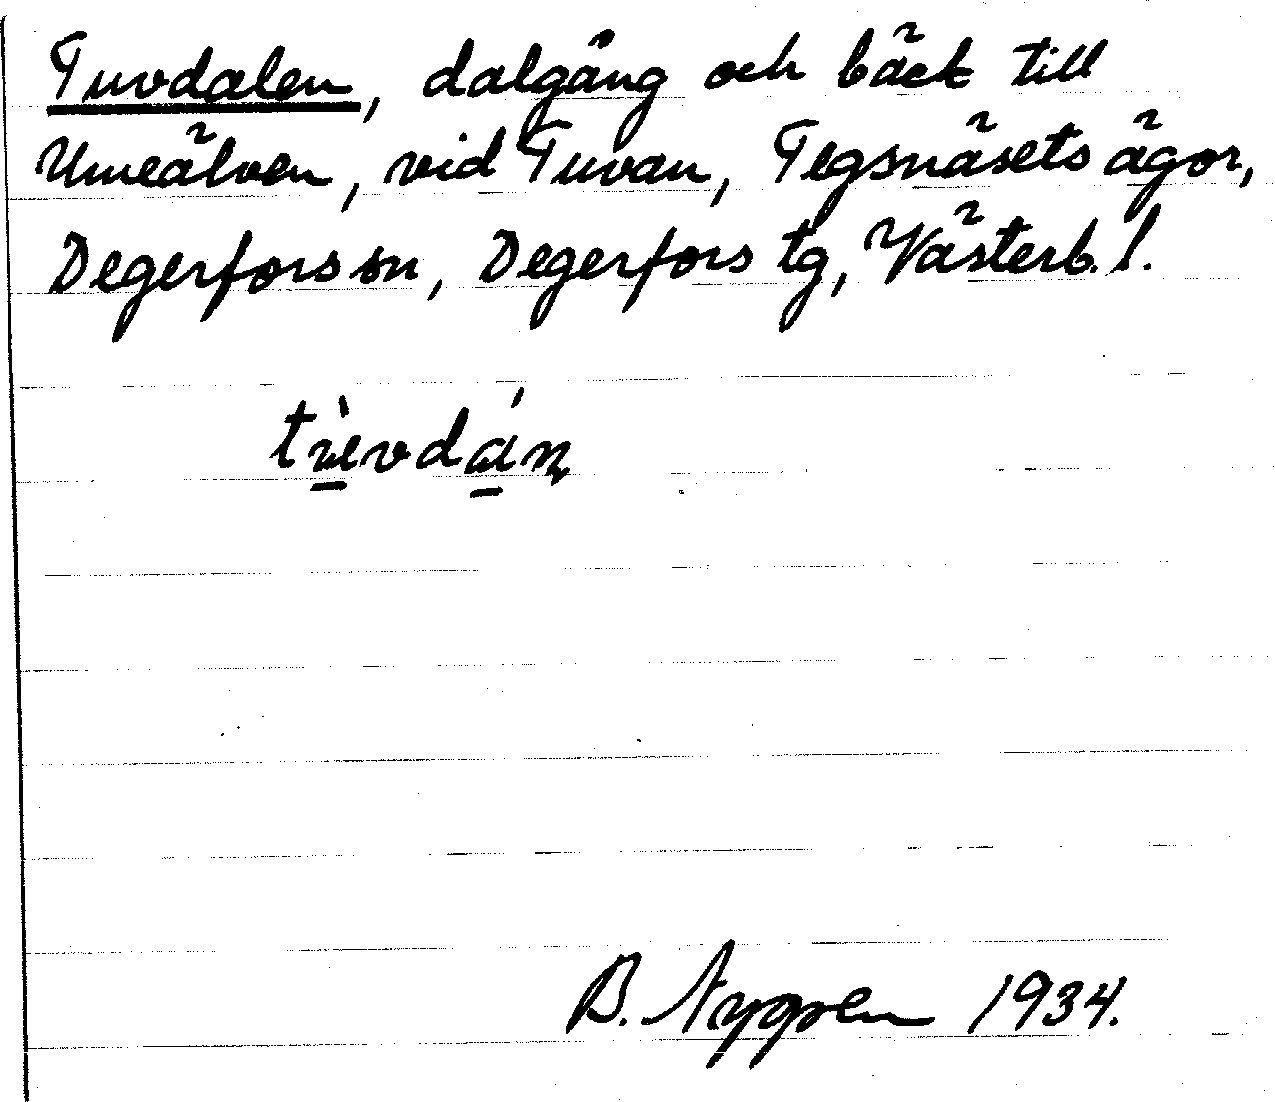 Tuvdalen, dalgång och bäck till
Umeälven, vid Tuvan, Tegsnäsets ägor,
Degerfors sn, Degerfors tg, Västerb. l.
B. Nygren 1934.